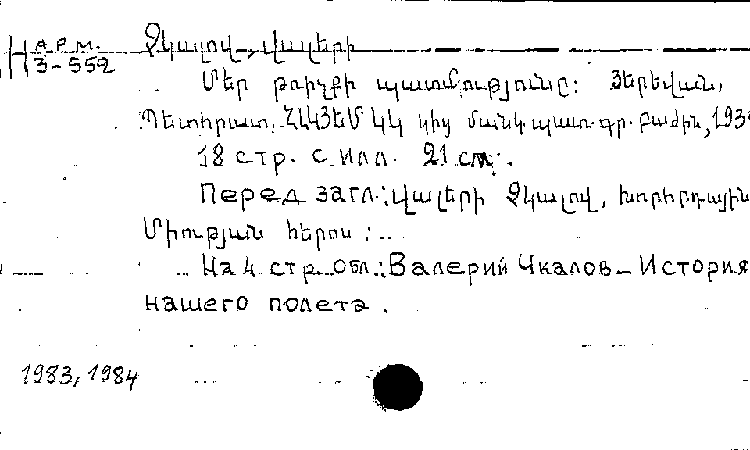 АРМ.
Н 3-552
Չկալով, Վալերի
Մեր թռիչքի պատմությունը: Յերեվան,
Պետհրատ, ՀԼԿՅԵՄ ԿԿ կից մանկ պատ. գր. բաժին, 193
18 стр. с илл. 21 см.
Перед загл.: Վալերի Չկալով, Խորհրդային
Միության հերոս:
На 4 стр. обл.: Валерий Чкалов - История
нашего полета.
1983, 1984